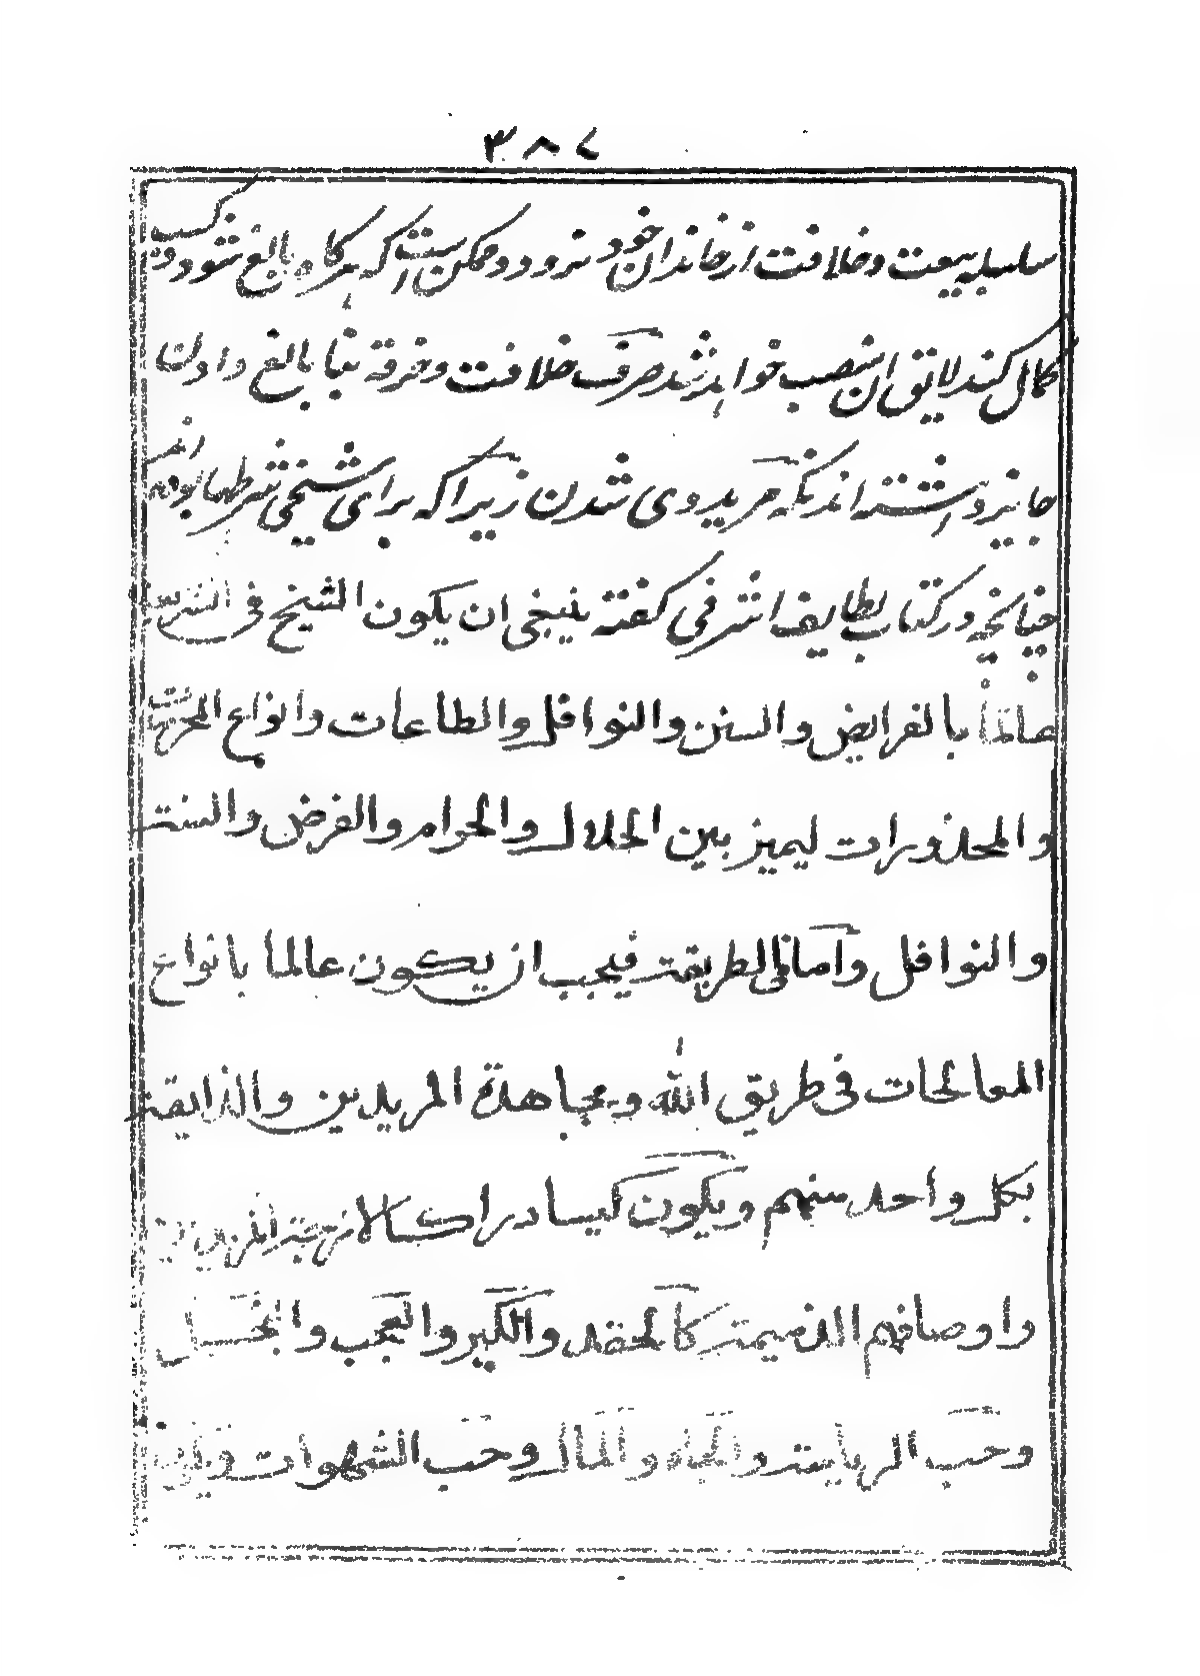 ۳۸۷
سلسله بیعت و خلافت از خاندان خود نرود و ممکن است که هرگاه بالغ شود و کسب
کمال کند لایق ان منصب خواهد شد صرف خلافت و خرقه بنا بالغ دادن
جایز داشته اند نکه مرید وی شدن زیرا که برای شیخی شرطها بوده اند
چنانچه در کتاب لطایف اشرفی گفته ینبغی ان یکون الشیخ فی الشریعة
عالماً بالفرایض والسنن والنوافل والطاعات وانواع المحرمات
والمحذورات لیمیز بین الحلال والحرام والفرض والسنة
والنوافل وامّا فی الطریقة فیجب ان یکون عالما بانواع
المعالجات فی طریق الله ومجاهدة المریدین والذایقة
بکل واحد منهم ویکون کیسا دراکا لا زجة المریدین
واوصافهم الذمیمة کالحقد والکبر والعجب والبخل
وحبّ الریاسة والجاه والمال وحب الشهوات